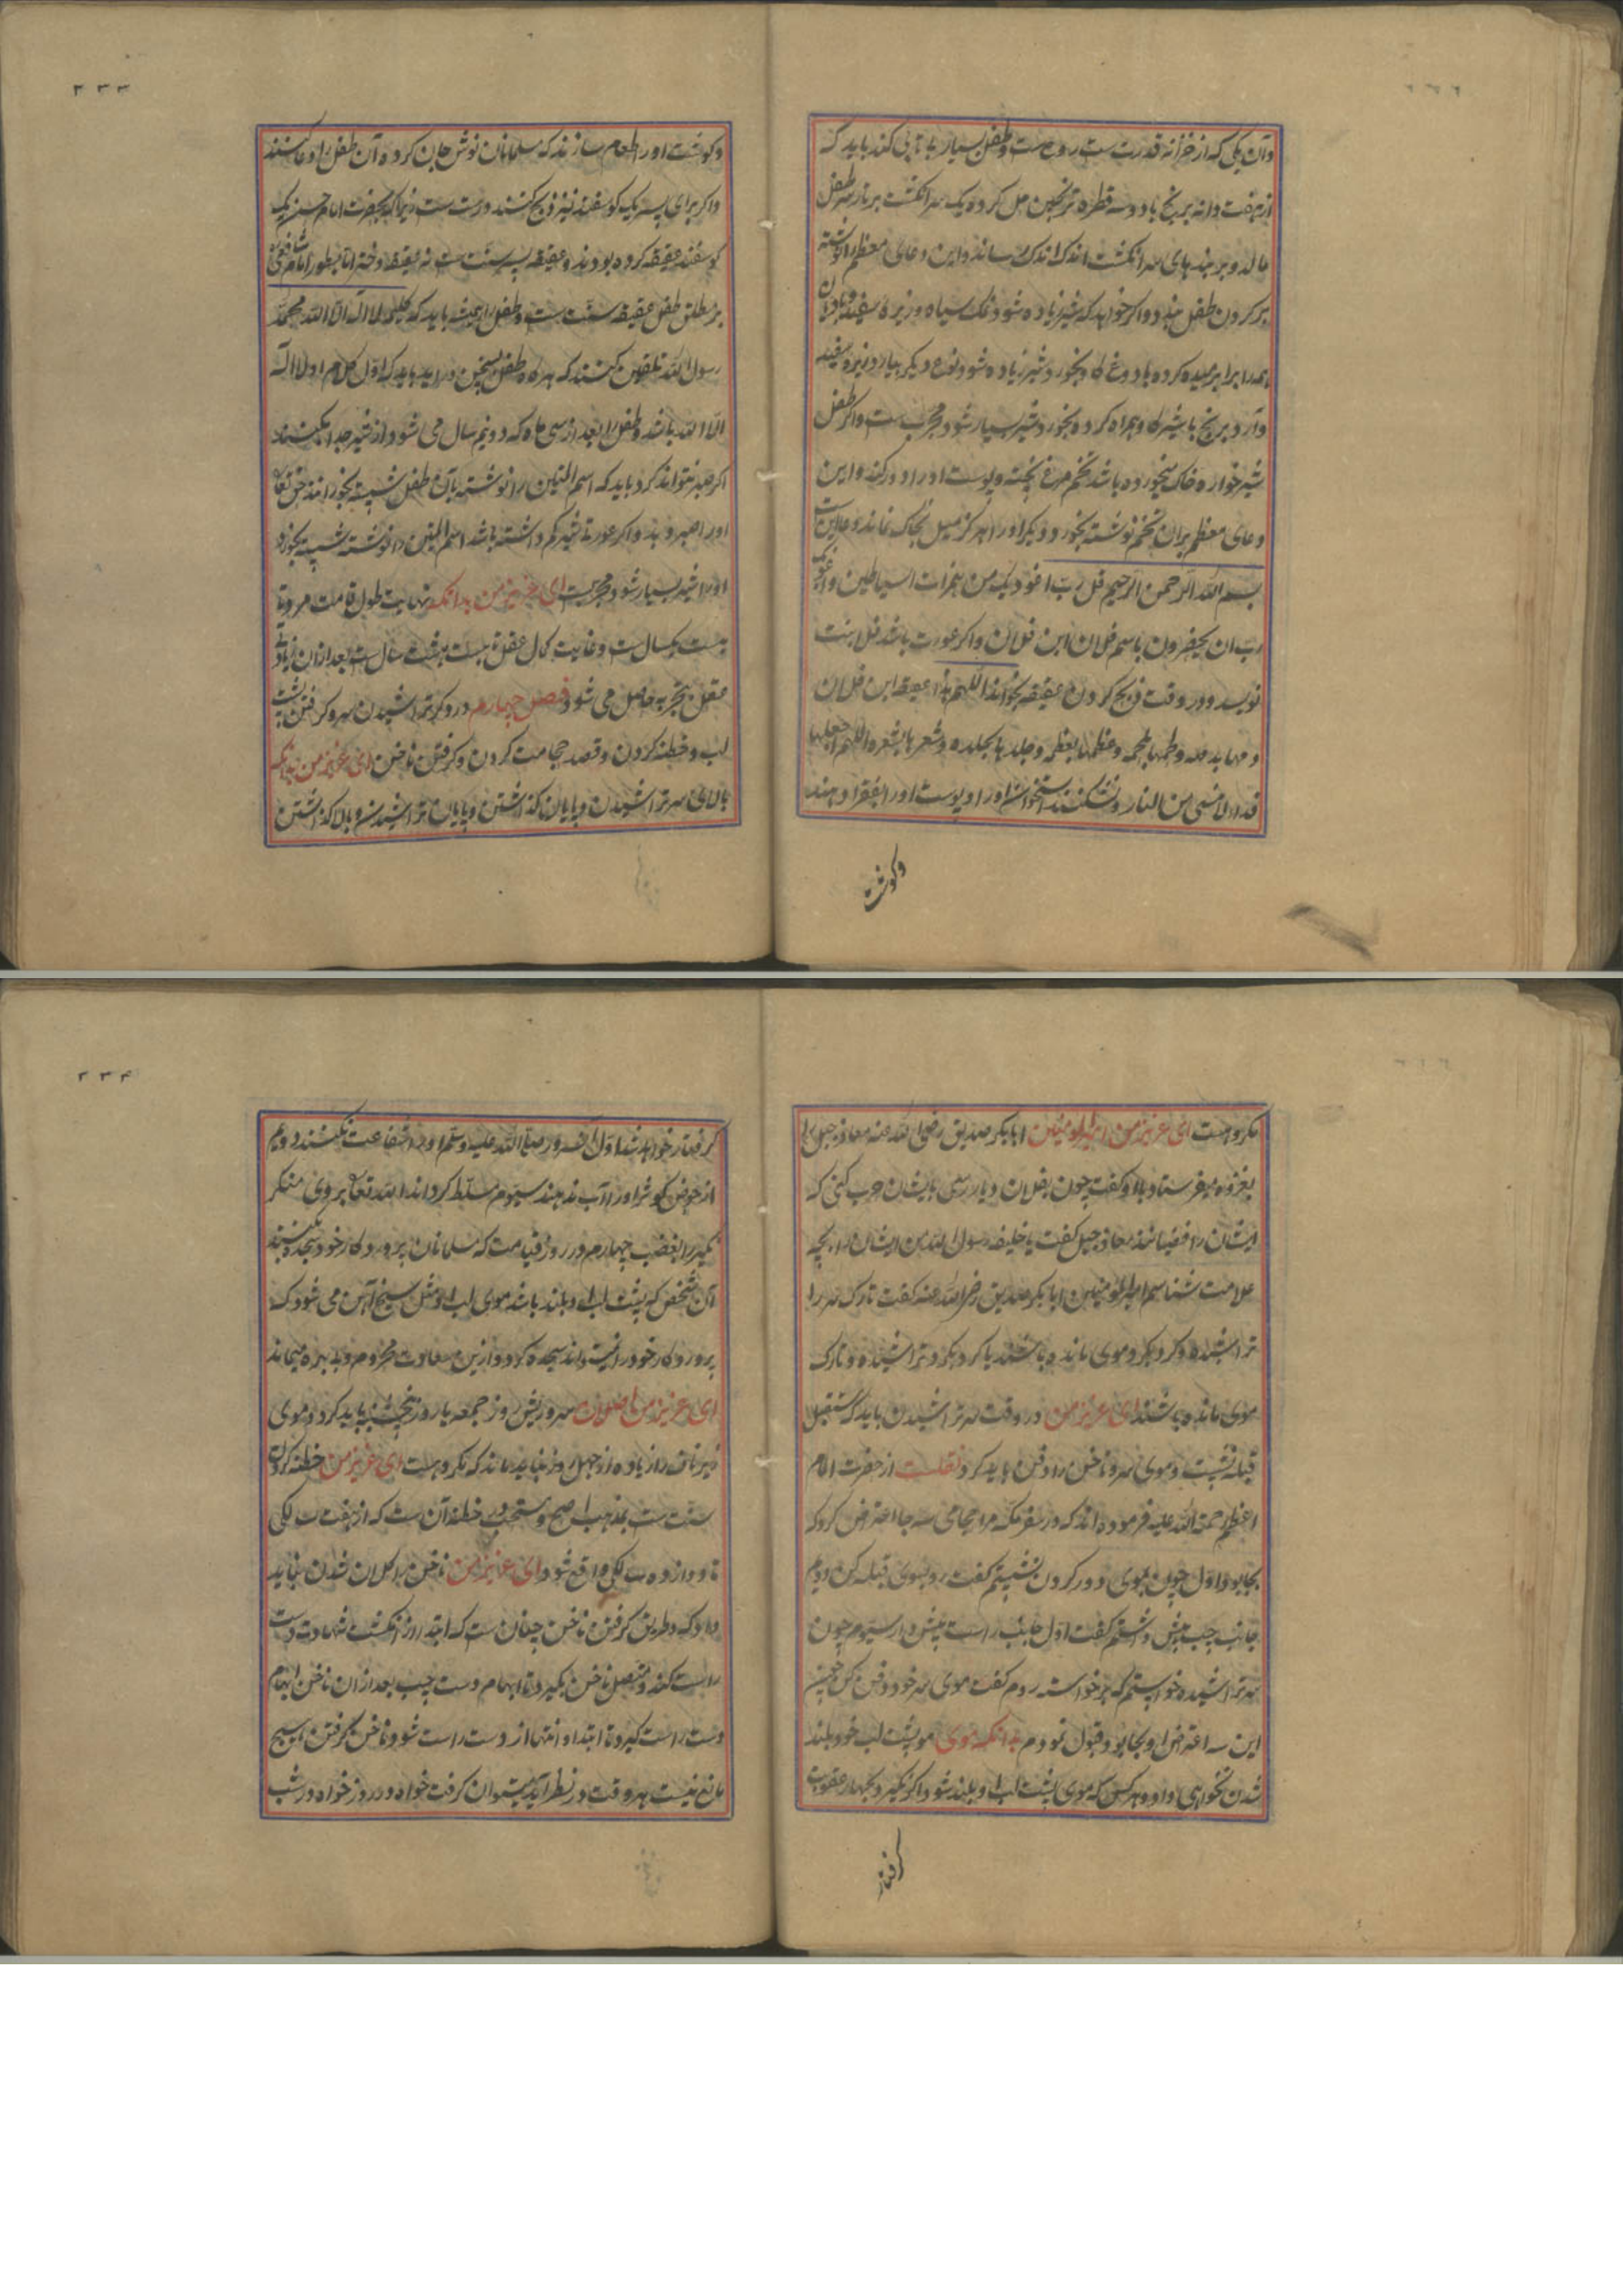 وآن یکی که از خزانه قدرت ست روح ست وطفل بسیار بیتابی کند باید که
از هفت دانه برنج با دو سه قطره ترنجبین حل کرده یک سر انگشت بر تارسر طفل
مالد و بر بندهای سر انگشت اندک اندک رساند و این دعای معظم را نوشته
بر کردن طفل بندد و اکر خواهد که شیر زیاده شود نمک سیاه و زیره سفید و بادیان
همه را برابر میده کرده با دوغ کاو بخورد شیر زیاده شود نوع دیکر بیارد زیره سفید
وآرد برنج با شیر کاو همراه کرده بخورد شیر بسیار شود مجرب ست واکر طفل
شیر خواره خاک میخورده باشد تخم مرغ پخته و پوست او را دور کند و این
دعای معظم بران تخم نوشته بخورد دیکر او را هرکز میل بخاک نماند دعا این ست
بسم الله الرحمن الرحیم قل رب اعوذ بک من همزات الشیاطین واعوذ بک
رب ان یحضرون باسم فلان ابن فلان واکر عورت باشد فلان بنت
نویسد و در وقت ذبح کردن عقیقه بخواند اللهم هذا عقیقه ابن فلان
دمها بدمه ولحمها بلحمه وعظمها بعظمه وجلدها بجلده وشعرها بشعره اللهم اجعلها
فداء لابنی من النار و نشکنند استخوان او را و پوست او را بفقرا دهند
وکوشت
۲۳۳
وکوشت او را طعام سازند که مسلمانان نوش جان کرده آن طفل را دعا کنند
واکر برای پسر یک کوسفند نیز ذبح کنند درست ست زیرا که بحضرت امام حسن یک
کوسفند عقیقه کرده بودند و عقیقه پسر سنت ست نه عقیقه دختر اما بطور امام شافعی
بر مطلق طفل عقیقه سنت ست وطفل را همیشه باید که کلمه لا اله الا الله محمد
رسول الله تلقین کنند که هرکاه طفل بسخن دراید باید که اول کلام او لا اله
الا الله باشد وطفل را بعد از سی ماه که دو نیم سال می شود از شیر جدا کنند
اکر صبر نتواند کرد باید که اسم المتین را نوشته بآن طفل شسته بخورانند حق تعالی
او را صبر دهد واکر عورت شیر کم داشته باشد اسم المتین را نوشته شسته بخورد
او را شیر بسیار شود مجربست ای عزیز من بدانکه نهایت طول قامت مرد تا
بیست یکسال ست و غایت کمال عقل تا بیست هشت سال ست بعد ازان زیادتی
عقل بتجربه حاصل می شود فصل چهارم در ذکر تراشیدن سر و کرفتن پشت
لب و خطنه کردن و قصد حجامت کردن و کرفتن ناخن ای عزیز من بدانکه
بالای سر تراشیدن و پایان کذاشتن و پایان تراشیدن و بالا کذاشتن
مکروهست ای عزیز من امیرالمومنین ابابکر صدیق رضی الله عنه معاذ جبل را
بغزوه میفرستاد با او کفت چون بفلان دیار رسی بایشان حرب کنی که
ایشان رافضیانند معاذ جبل کفت یا خلیفه رسول الله من ایشان را بچه
علامت شناسم امیرالمومنین ابابکر صدیق رضی الله عنه کفت تارک سر را
تراشیده و کرد بکرد موی مانده باشند یا کرد بکرد تراشیده و تارک
موی مانده باشند ای عزیز من در وقت سر تراشیدن باید که مستقبل
قبله نشیند و موی سر و ناخن را دفن باید کرد نقلست از حضرت امام
اعظم رحمة الله علیه فرموده اند که در سفر مکه مرا حجامی سه جا اعتراض کرد که
بجا بود اول چون بموی دور کردن نشستم کفت رو بسوی قبله کن دویم
جانب چپ پیش داشتم کفت اول جانب راست پیش دار سیوم چون
سر تراشیده خواستم که برخواسته روم کفت موی سر خود دفن کن چنین
این سه اعتراض او بجا بود قبول نمودم بدانکه موی مو پشت لب خود بلند
شدن نخواهی داد و هر کس که موی پشت لب او بلند شود اکر نکیرد بچهار عقوبت
کرفتار
۲۳۴
کرفتار خواهد شد اول آنسرور صلی الله علیه وسلم او را شفاعت نکنند دویم
از حوض کوثر او را آب ندهند سیوم مسلط کرداند الله تعالی بروی منکر
نکیر را بغضب چهارم در روز قیامت که مسلمانان پروردکار خود سجده کنند
آن شخص که پشت لب او بلند باشد موی لب او مثل سیخ آهن می شود که
پروردکار خود را نمیتواند سجده کرد و ازین سعادت محروم و بی بهره میماند
ای عزیز من اصلاح سر و ریش روز جمعه یا روز پنجشنبه باید کرد و موی
زیر ناف را زیاده از چهل روز نباید ماند که مکروهست ای عزیز من خطنه کردن
سنت ست بمذهب اصح و مستحب در خطنه آن ست که از هفت سالکی
تا دوازده سالکی واقع شود ای عزیز من ناخن را کلان شدن نباید
داد که و طریق کرفتن ناخن چنان ست که ابتدا از انکشت شهادت دست
راست کند و متصل ناخن بکیرد تا ابهام دست چپ بعد ازان ناخن ابهام
دست راست کیرد تا ابتدا و انتها از دست راست شود و ناخن کرفتن هیچ
مانع نیست هر وقت در نظر آید میتوان کرفت خواه در روز خواه در شب